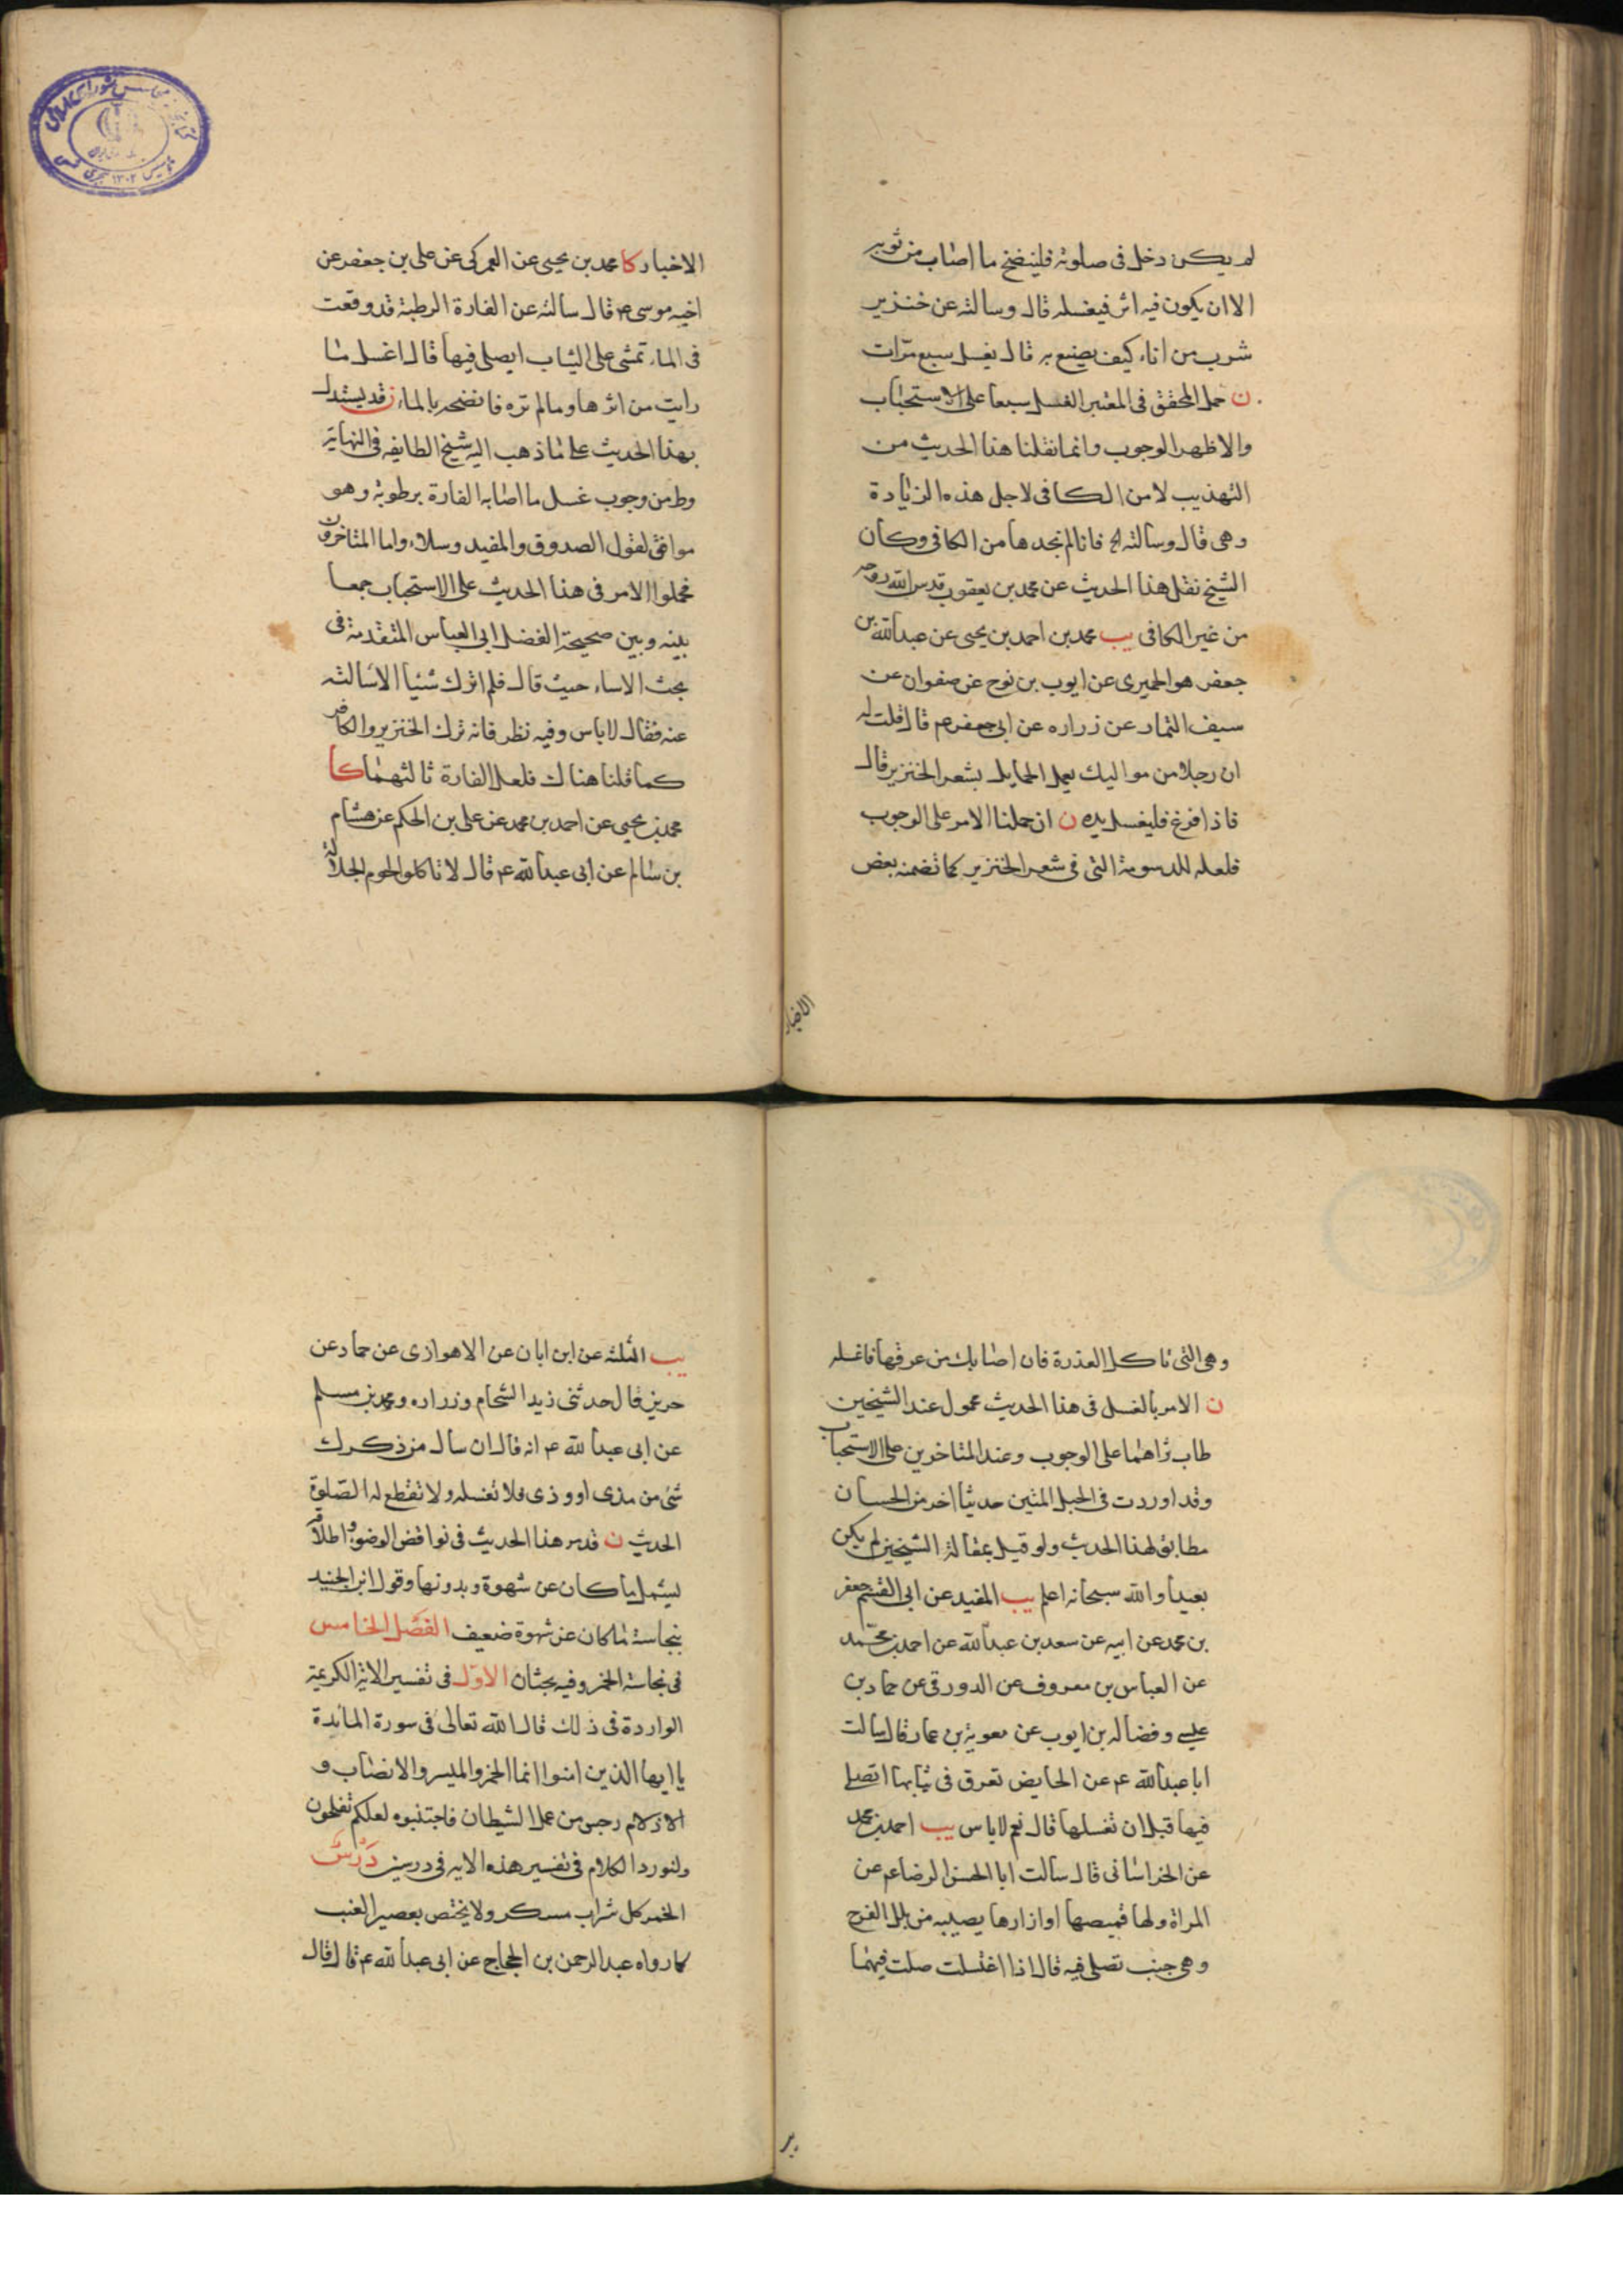 لم يكن دخل فى صلوته فلينضح ما اصاب من ثوبه
الا ان يكون فيه اثر فيغسله قال وسالته عن خنزير
شرب من اناء كيف يصنع به قال يغسل سبع مرّات
ن حمل المحقق فى المعتبر الغسل سبعا على الاستحباب
والاظهر الوجوب وانما نقلنا هذا الحديث من
التهذيب لا من الكافى لاجل هذه الزيادة
وهى قال وسالته الخ فانا لم نجدها من الكافى وكان
الشيخ نقل هذا الحديث عن محمد بن يعقوب قدس الله روحه
من غير الكافى يب محمد بن احمد بن يحيى عن عبد الله بن
جعفر هو الحميرى عن ايوب بن نوح عن صفوان عن
سيف التمار عن زراره عن ابى جعفر ع م قال قلت له
ان رجلا من مواليك يعمل الحمايل بشعر الخنزير قال
فاذا فرغ فليغسل يده ن ان حملنا الامر على الوجوب
فلعله للدسومة التى فى شعر الخنزير كما تضمنه بعض
الاخبار
الاخبار كا محمد بن يحيى عن العمركى عن على بن جعفر عن
اخيه موسى ع م قال سالته عن الفارة الرطبة قد وقعت
فى الماء تمشى على الثياب ايصلى فيها قال اغسل ما
رايت من اثرها وما لم تره فانضحه بالماء ن قد يستدل
بهذا الحديث على ما ذهب اليه شيخ الطايفه فى النهاية
وط من وجوب غسل ما اصابه الفارة برطوبة وهو
موافق لقول الصدوق والمفيد وسلار واما المتاخرون
فحملوا الامر فى هذا الحديث على الاستحباب جمعا
بينه وبين صحيحة الفضل ابى العباس المتقدمة فى
بحث الاساء حيث قال فلم اترك شيئا الا سالته
عنه فقال لا باس وفيه نظر فانه ترك الخنزير والكافر
كما قلنا هناك فلعل الفارة ثالثهما كا
محمد بن يحيى عن احمد بن محمد عن على بن الحكم عن هشام
بن سالم عن ابى عبد الله ع م قال لا تاكلوا لحوم الجلالة
وهى التى تاكل العذرة فان اصابك من عرقها فاغسله
ن الامر بالغسل فى هذا الحديث محمول عند الشيخين
طاب ثراهما على الوجوب وعند المتاخرين على الاستحباب
وقد اوردت فى الحبل المتين حديثا اخر من الحسان
مطابق لهذا الحديث ولو قيل بمقالة الشيخين لم يكن
بعيدا والله سبحانه اعلم يب المفيد عن ابى القسم جعفر
بن محمد عن ابيه عن سعد بن عبد الله عن احمد بن محمّد
عن العباس بن معروف عن الدورقى عن حماد بن
عليسى وفضاله بن ايوب عن معوية بن عمار قال سالت
ابا عبد الله ع م عن الحايض تعرق فى ثيابها اتصلى
فيها قبل ان تغسلها قال نعم لا باس يب احمد بن محمد
عن الخراسانى قال سالت ابا الحسن الرضا ع م عن
المراة ولها قميصها او ازارها يصيبه من بلل الفرج
وهى جنب تصلى فيه قال اذا اغتسلت صلت فيهما
يب
يب الثلثه عن ابن ابان عن الاهوازى عن حماد عن
حريز قال حدثنى زيد الشحام وزراره ومحمد بن مسلم
عن ابى عبد الله ع م انه قال ان سال من ذكرك
شئ من مذى او وذى فلا تغسله ولا تقطع له الصّلوة
الحديث ن قد مر هذا الحديث فى نواقض الوضوء واطلاقه
ليشمل ما كان عن شهوة وبدونها وقول ابن الجنيد
بنجاسة ما كان عن شهوة ضعيف الفصل الخامس
فى نجاسة الخمر وفيه بحثان الاوّل فى تفسير الاية الكريمة
الواردة فى ذلك قال الله تعالى فى سورة المائدة
يا ايها الذين امنوا انما الخمر والميسر والانصاب و
الازلام رجس من عمل الشيطان فاجتنبوه لعلكم تفلحون
ولنورد الكلام فى تفسير هذه الايه فى درسين دَرْسٌ
الخمر كل شراب مسكر ولا يختص بعصير العنب
كما رواه عبد الرحمن بن الحجاج عن ابى عبد الله ع م قال قال